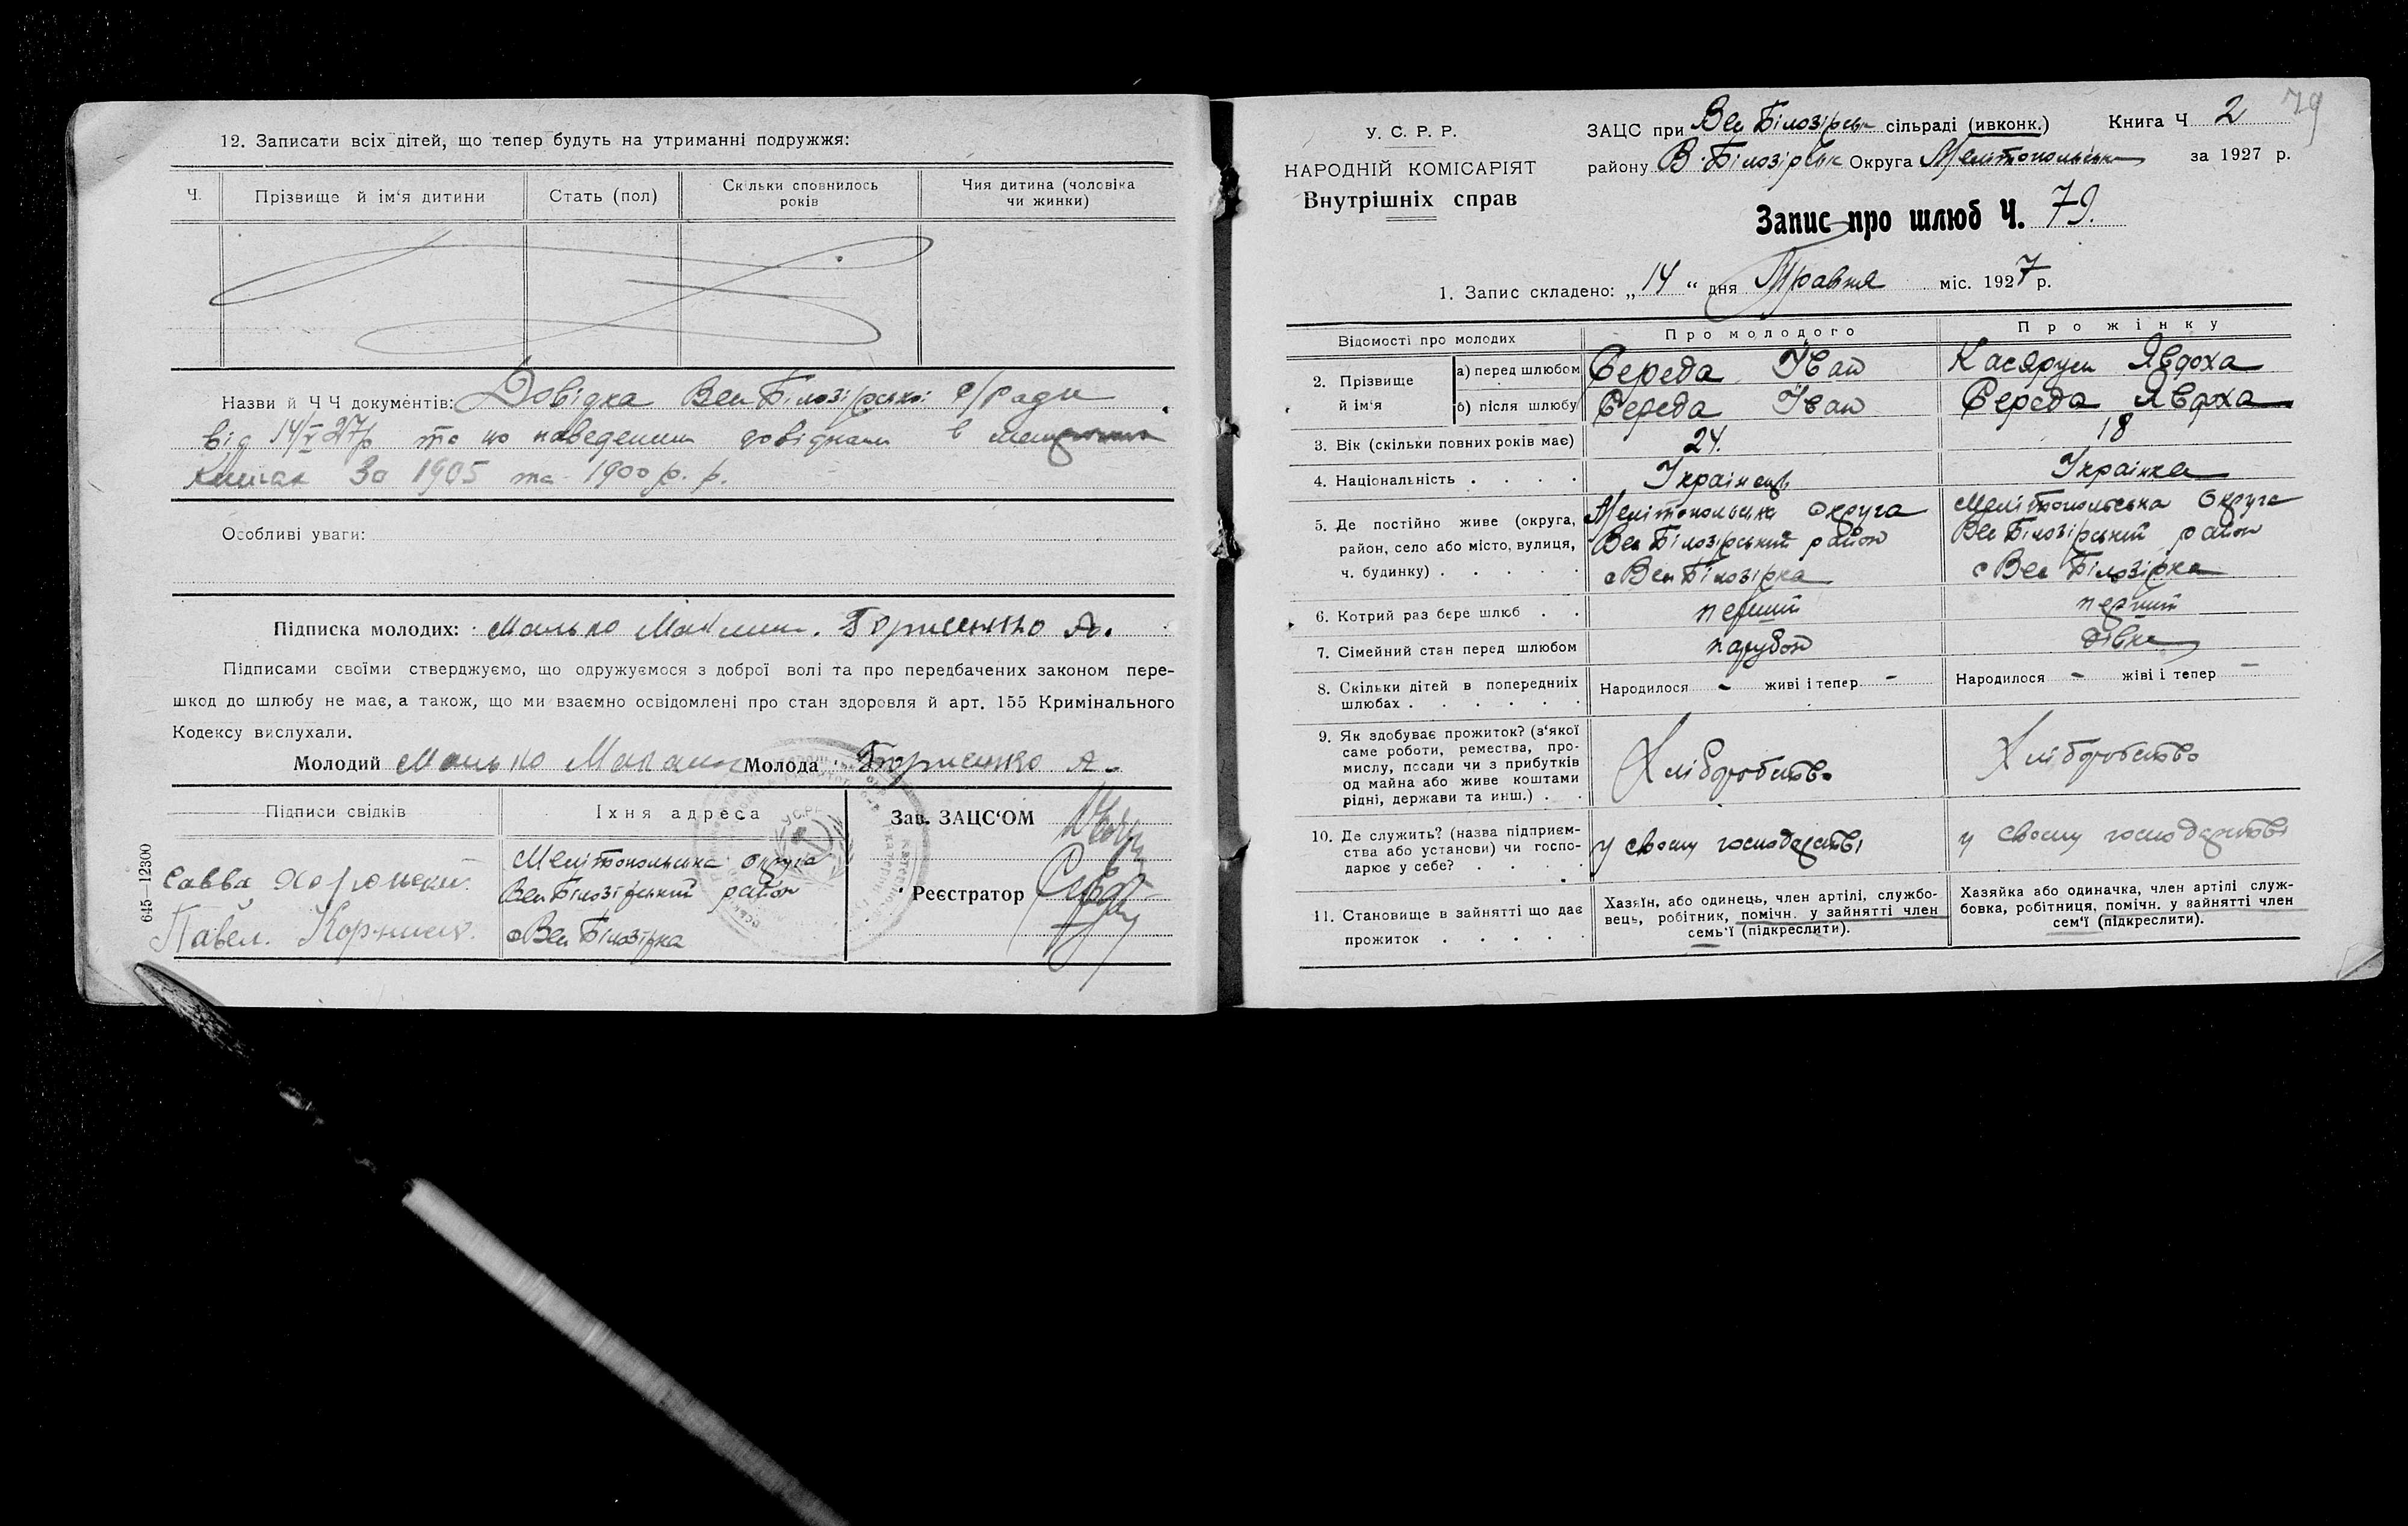 12. Записати всіх дітей, що тепер будуть на утриманні подружжя:
Ч. Прізвище й ім‘я дитини Стать (пол) Скільки сповнилось років Чия дитина (чоловіка чи жинки)
Назви й Ч Ч документів: Довідка Вел Білозірської с/ради
від 14/V 27р та по наведеним довідкам в
Книгах За 1905 та 1900 р. р.
Особливі уваги:
Підписка молодих: Манько Борисенко А.
Підписами своїми стверджуємо, що одружуємося з доброї волі та про передбачених законом пере-
шкод до шлюбу не має, а також, що ми взаємно освідомлені про стан здоровля й арт. 155 Кримінального
Кодексу вислухали.
Молодий Манько Молода Борисенко А.
Підписи свідків Їхня адреса Зав. ЗАЦС‘ОМ
Мелітопольська округа
Савва
Вел Білозірський район
Реєстратор
Павел.
с Вел Білозірка
645—12300
У. С. Р. Р.
НАРОДНІЙ КОМІСАРІЯТ
Внутрішніх справ
79
ЗАЦС при Вел Білозірськ сільраді (ивконк.) Книга Ч 2
району В. Білозірськ Округа Мелітопольськ за 1927 р.
Запис про шлюб Ч. 79.
1. Запис складено: „14“ дня Травня міс. 1927 р.
Відомості про молодих Про молодого Про жінку
2. Прізвище й ім‘я
а) перед шлюбом Середа Іван Касярум Явдоха
б) після шлюбу Середа Іван Середа Явдоха
3. Вік (скільки повних років має) 24. 18
4. Національність . . . . Українець Українка
5. Де постійно живе (округа, район, село або місто, вулиця, ч. будинку) . . . . .
Мелітопольська округа
Вел Білозірський район
с Вел Білозірка
Мелітопольська Округа
Вел Білозірський район
с Вел Білозірка
6. Котрий раз бере шлюб . . перший перший
7. Сімейний стан перед шлюбом парубок дівка
8. Скільки дітей в попередниіх шлюбах . . . . . . Народилося - живі і тепер - Народилося - живі і тепер -
9. Як здобуває прожиток? (з‘якої
саме роботи, ремества, про-
мислу, посади чи з прибутків
од майна або живе коштами
рідні, держави та инш.) . .
Хліборобство
Хліборобство
10. Де служить? (назва підприєм-
ства або установи) чи госпо-
дарює у себе? . . . .
у своєму господарстві
у своєму господарстві
11. Становище в зайнятті що дає
прожиток . . . . .
Хазяїн, або одинець, член артілі, службо-
вець, робітник, помічн. у зайнятті член
семь‘ї (підкреслити).
Хазяйка або одиначка, член артілі служ-
бовка, робітниця, помічн. у зайнятті член
сем‘ї (підкреслити).